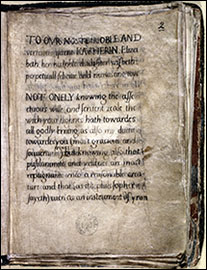 TO OUR MOST NOBLE AND
vertuous quene KATHERIN, Eliza
beth her humble daughter wisheth
perpetuall felicitie and
NOT ONELY knowing the affe
ctuous wille and fervent zeale the
wich your highnes hath towardes
all godly lerning as also my duetie
towardes you (most gracious and
knowing also that
pusilanimite and ydlenes ar most
repugnante unto a reasonable crea
ture and that (as the philosopher
sayeth) as an instrument of yron